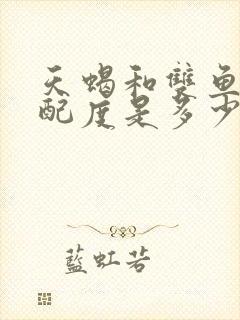 天蝎和雙魚
配度是多少
藍虹若